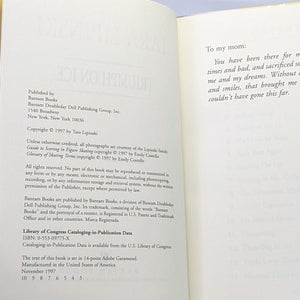 Published by
Bantam Books
Bantam Doubleday Dell Publishing Group, Inc.
1540 Broadway
New York, New York 10036
Copyright © 1997 by Tara Lipinski
Unless otherwise credited, all photographs are courtesy of the Lipinski family.
Guide to Scoring in Figure Skating copyright © 1997 by Emily Costello
Glossary of Skating Terms copyright © 1997 by Emily Costello
All rights reserved. No part of this book may be reproduced or transmitted in
any form or by any means, electronic or mechanical, including photocopying,
recording, or by any information storage and retrieval system, without the written
permission of the Publisher, except where permitted by law.
Bantam Books are published by Bantam Books, a division of Bantam Doubleday
Dell Publishing Group, Inc. Its trademark, consisting of the words "Bantam
Books" and the portrayal of a rooster, is Registered in U.S. Patent and Trademark
Office and in other countries. Marca Registrada.
Library of Congress Cataloging-in-Publication Data
ISBN: 0-553-09775-X
Cataloging-in-Publication Data is available from the U.S. Library of Congress.
The text of this book is set in 14-point Adobe Garamond.
Manufactured in the United States of America
November 1997
10 9 8 7 6 5 4 3
To my mom:
You have been there for m
times and bad, and sacrificed s
me and my dreams. Without
and smiles, that brought me
couldn't have gone this far.